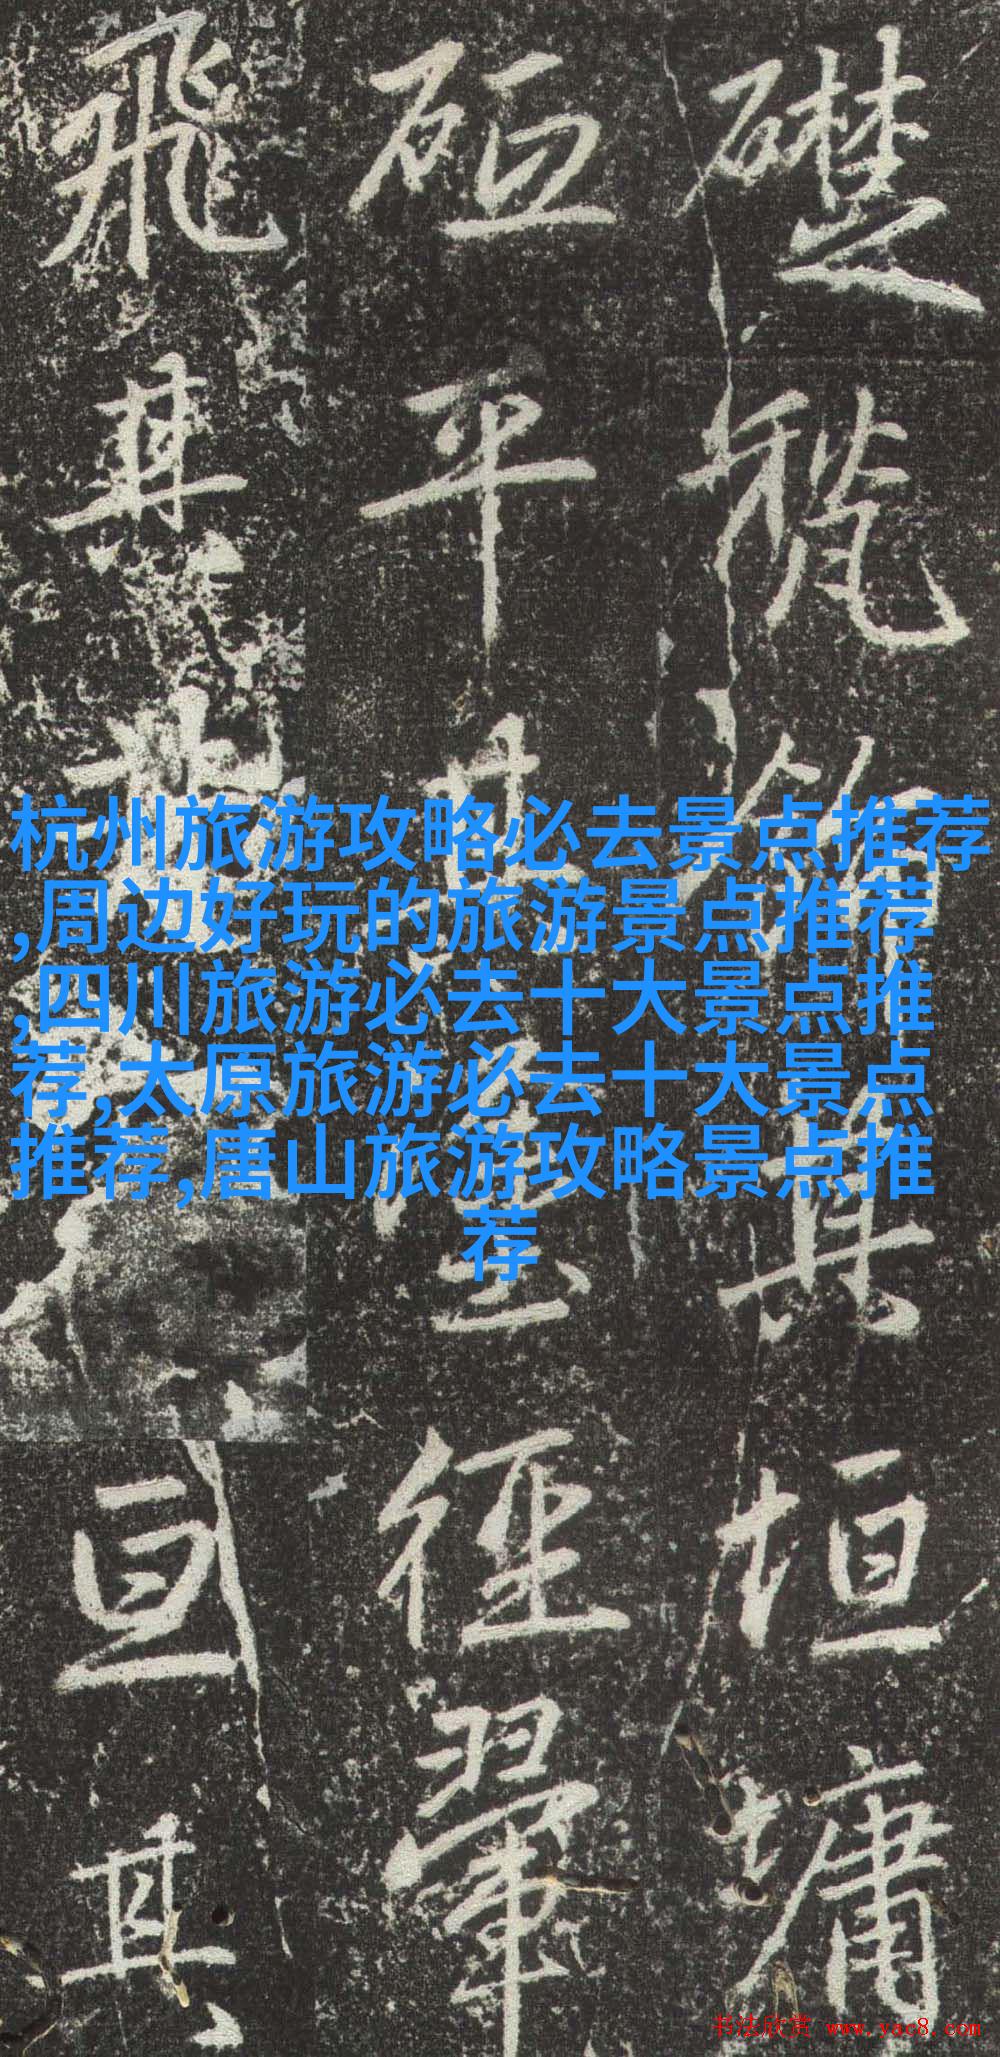 杭州旅游攻略必去景点推荐
,周边好玩的旅游景点推荐
,四川旅游必去十大景点推
荐,太原旅游必去十大景点
推荐,唐山旅游攻略景点推
荐
礎 其垣墉
平 徑翬
飛其 亘其
书法欣赏 www.yac8.com